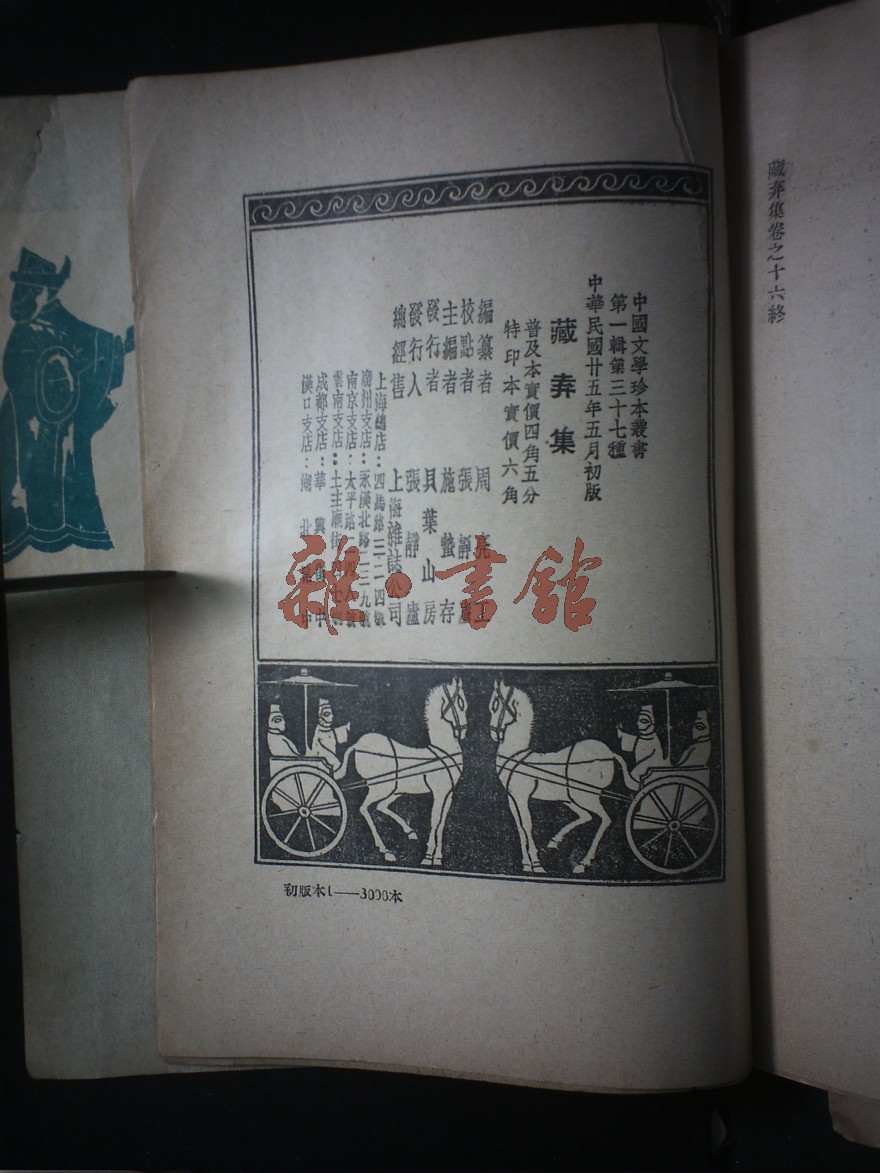 藏弆集卷之十六終
中國文學珍本叢書
第一輯第三十七種
中華民國廿五年五月初版
藏弆集
普及本實價四角五分
特印本實價六角
編纂者 周亮工
校點者 張靜廬
主編者 施蟄存
發行者 貝葉山房
發行人 張靜廬
總經售 上海雜誌公司
上海總店：四馬路三二四號
廣州支店：永漢北路二三九號
南京支店：太平路
雲南支店：土主廟街
成都支店：華興
漢口支店：湖北
初版本1——3000本
雜·書館